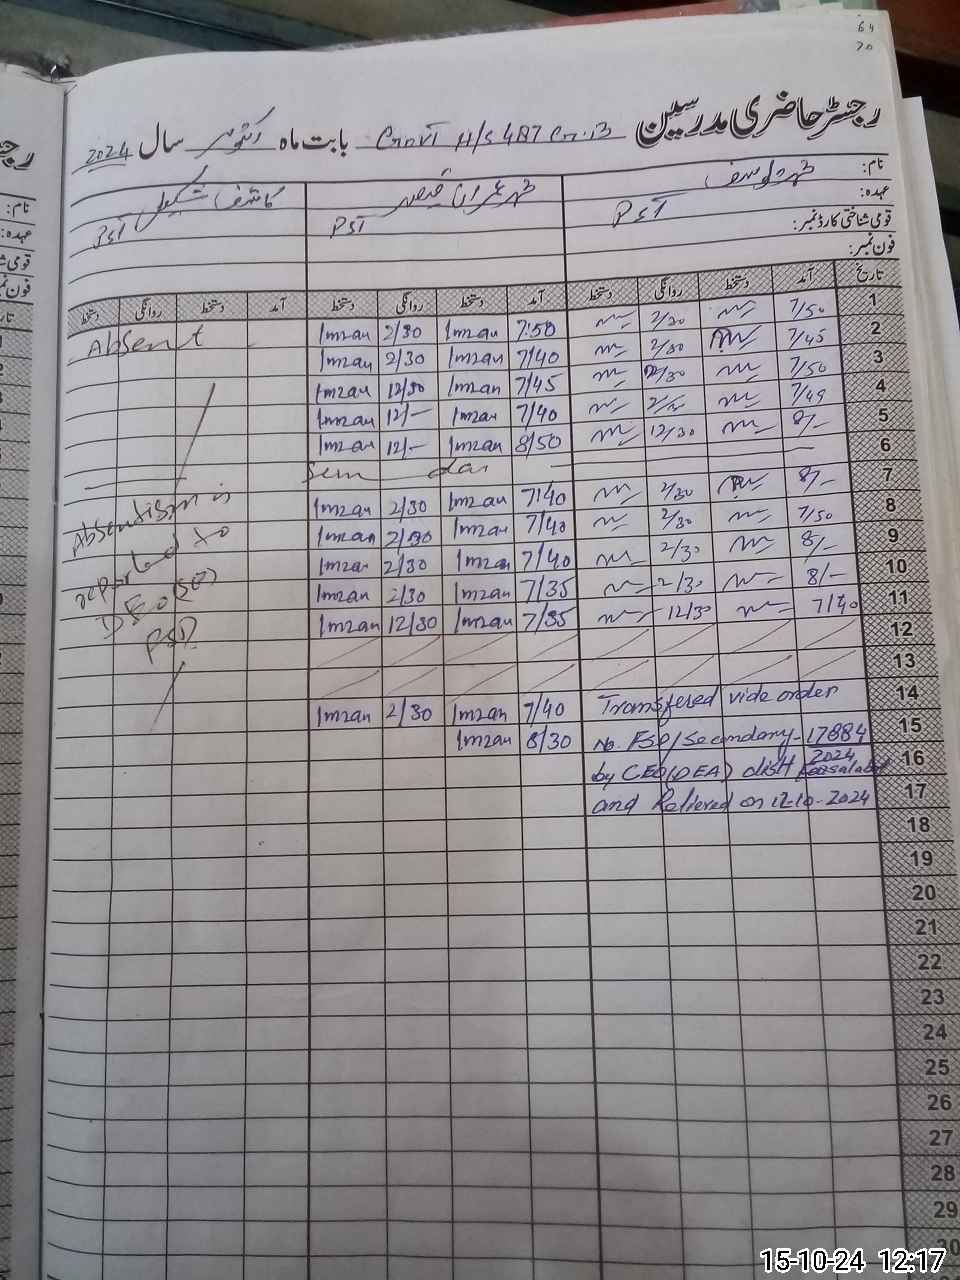 64
70
رجسٹر حاضری مدرسین Govt H/S 487 G.B بابت ماہ اکتوبر سال 2024
نام: محمد یوسف محمد عمران قیصر کاشف شکیل
عہدہ: PST PST PST
قومی شناختی کارڈ نمبر:
فون نمبر:
تاریخ آمد دستخط روانگی دستخط آمد دستخط روانگی دستخط آمد دستخط روانگی دستخط
1 7/50 2/30 7:50 Imran 2/30 Imran Absent
2 7/45 2/30 7/40 Imran 2/30 Imran
3 7/50 12/30 7/45 Imran 12/30 Imran
4 7/49 7/40 Imran 12/- Imran
5 8/- 12/30 8/50 Imran 12/- Imran
6 Sun day
7 8/- 2/30 7:40 Imran 2/30 Imran Absentism is
8 7/50 2/30 7/40 Imran 2/30 Imran reported to
9 8/- 2/30 7/40 Imran 2/30 Imran DEO (SE)
10 8/- 2/30 7/35 Imran 2/30 Imran FSD
11 7/40 12/30 7/35 Imran 12/30 Imran
12
13
14 Transfered vide order 7/40 Imran 2/30 Imran
15 No. FSD/Secondary-17884 8/30 Imran
2024
16 by CEO(DEA) distt Faisalabad
17 and Relieved on 12-10-2024
18
19
20
21
22
23
24
25
26
27
28
29
30
15-10-24 12:17